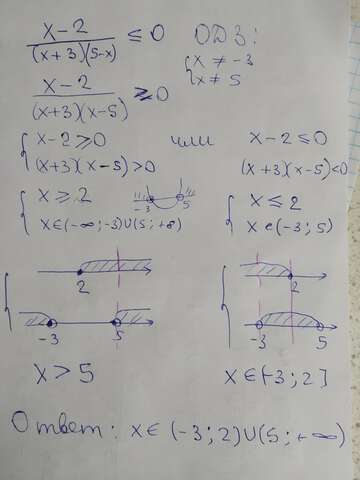 x-2/(x+3)(5-x) ≤ 0 ОДЗ:
{x ≠ -3
{x ≠ 5
x-2/(x+3)(x-5) ≥ 0
{x-2 ≥ 0 или x-2 ≤ 0
{(x+3)(x-5) > 0 (x+3)(x-5) < 0
{x ≥ 2 -3 5 {x ≤ 2
{x ∈ (-∞; -3) ∪ (5; +∞) {x ∈ (-3; 5)
2 2
-3 5 -3 5
x > 5 x ∈ (-3; 2]
Ответ: x ∈ (-3; 2) ∪ (5; +∞)